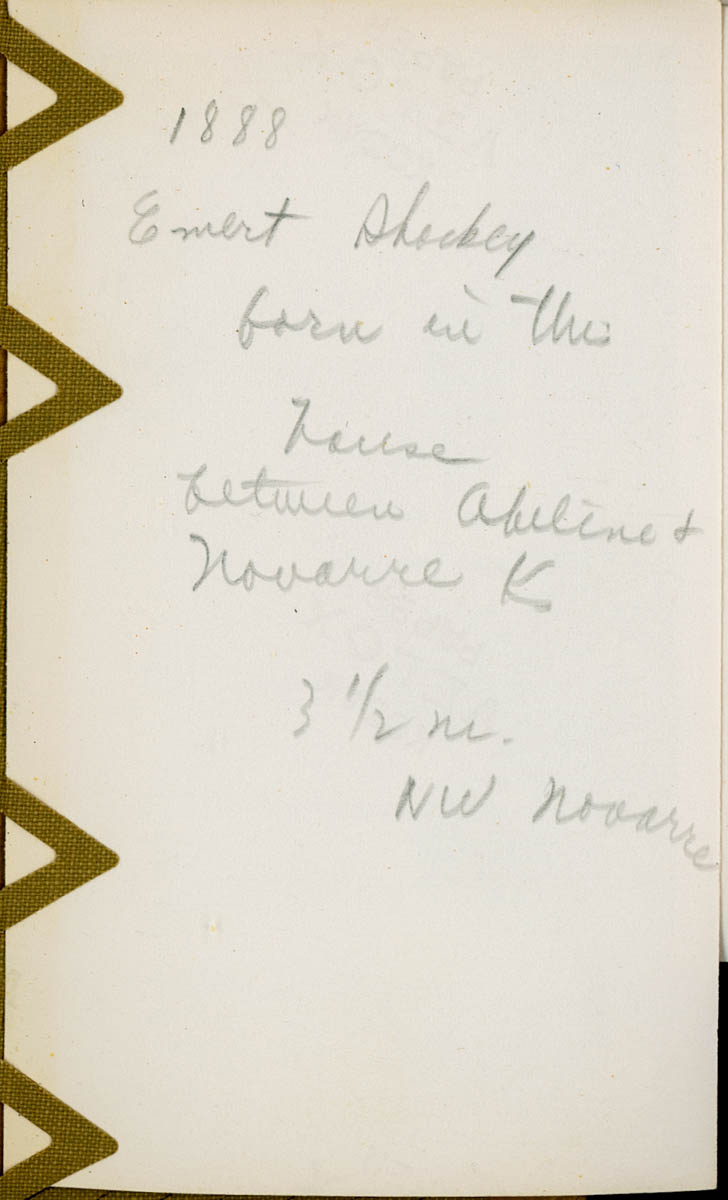 1888
Emert Shockey
born in this
house
between Abilene &
Novarre K
3 1/2 m.
NW Novarre